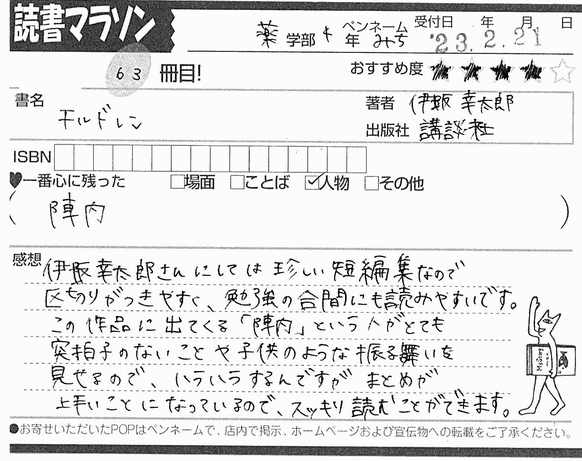 読書マラソン
薬 学部 4 年 ペンネーム みち 受付日 年 月 日
'23.2.21
63 冊目! おすすめ度 ★★★★☆
書名 著者 伊坂 幸太郎
チルドレン 出版社 講談社
ISBN
♥一番心に残った □場面 □ことば ☑人物 □その他
( 陣内 )
感想 伊阪幸太郎さんにしては珍しい短編集なので
区切りがつきやすく、勉強の合間にも読みやすいです。
この作品に出てくる「陣内」という人がとても
突拍子のないことや子供のような振る舞いを
見せるので、イライラするんですがまとめが
上手いことになっているので、スッキリ読むことができます。
●お寄せいただいたPOPはペンネームで、店内で掲示、ホームページおよび宣伝物への転載をご了承ください。